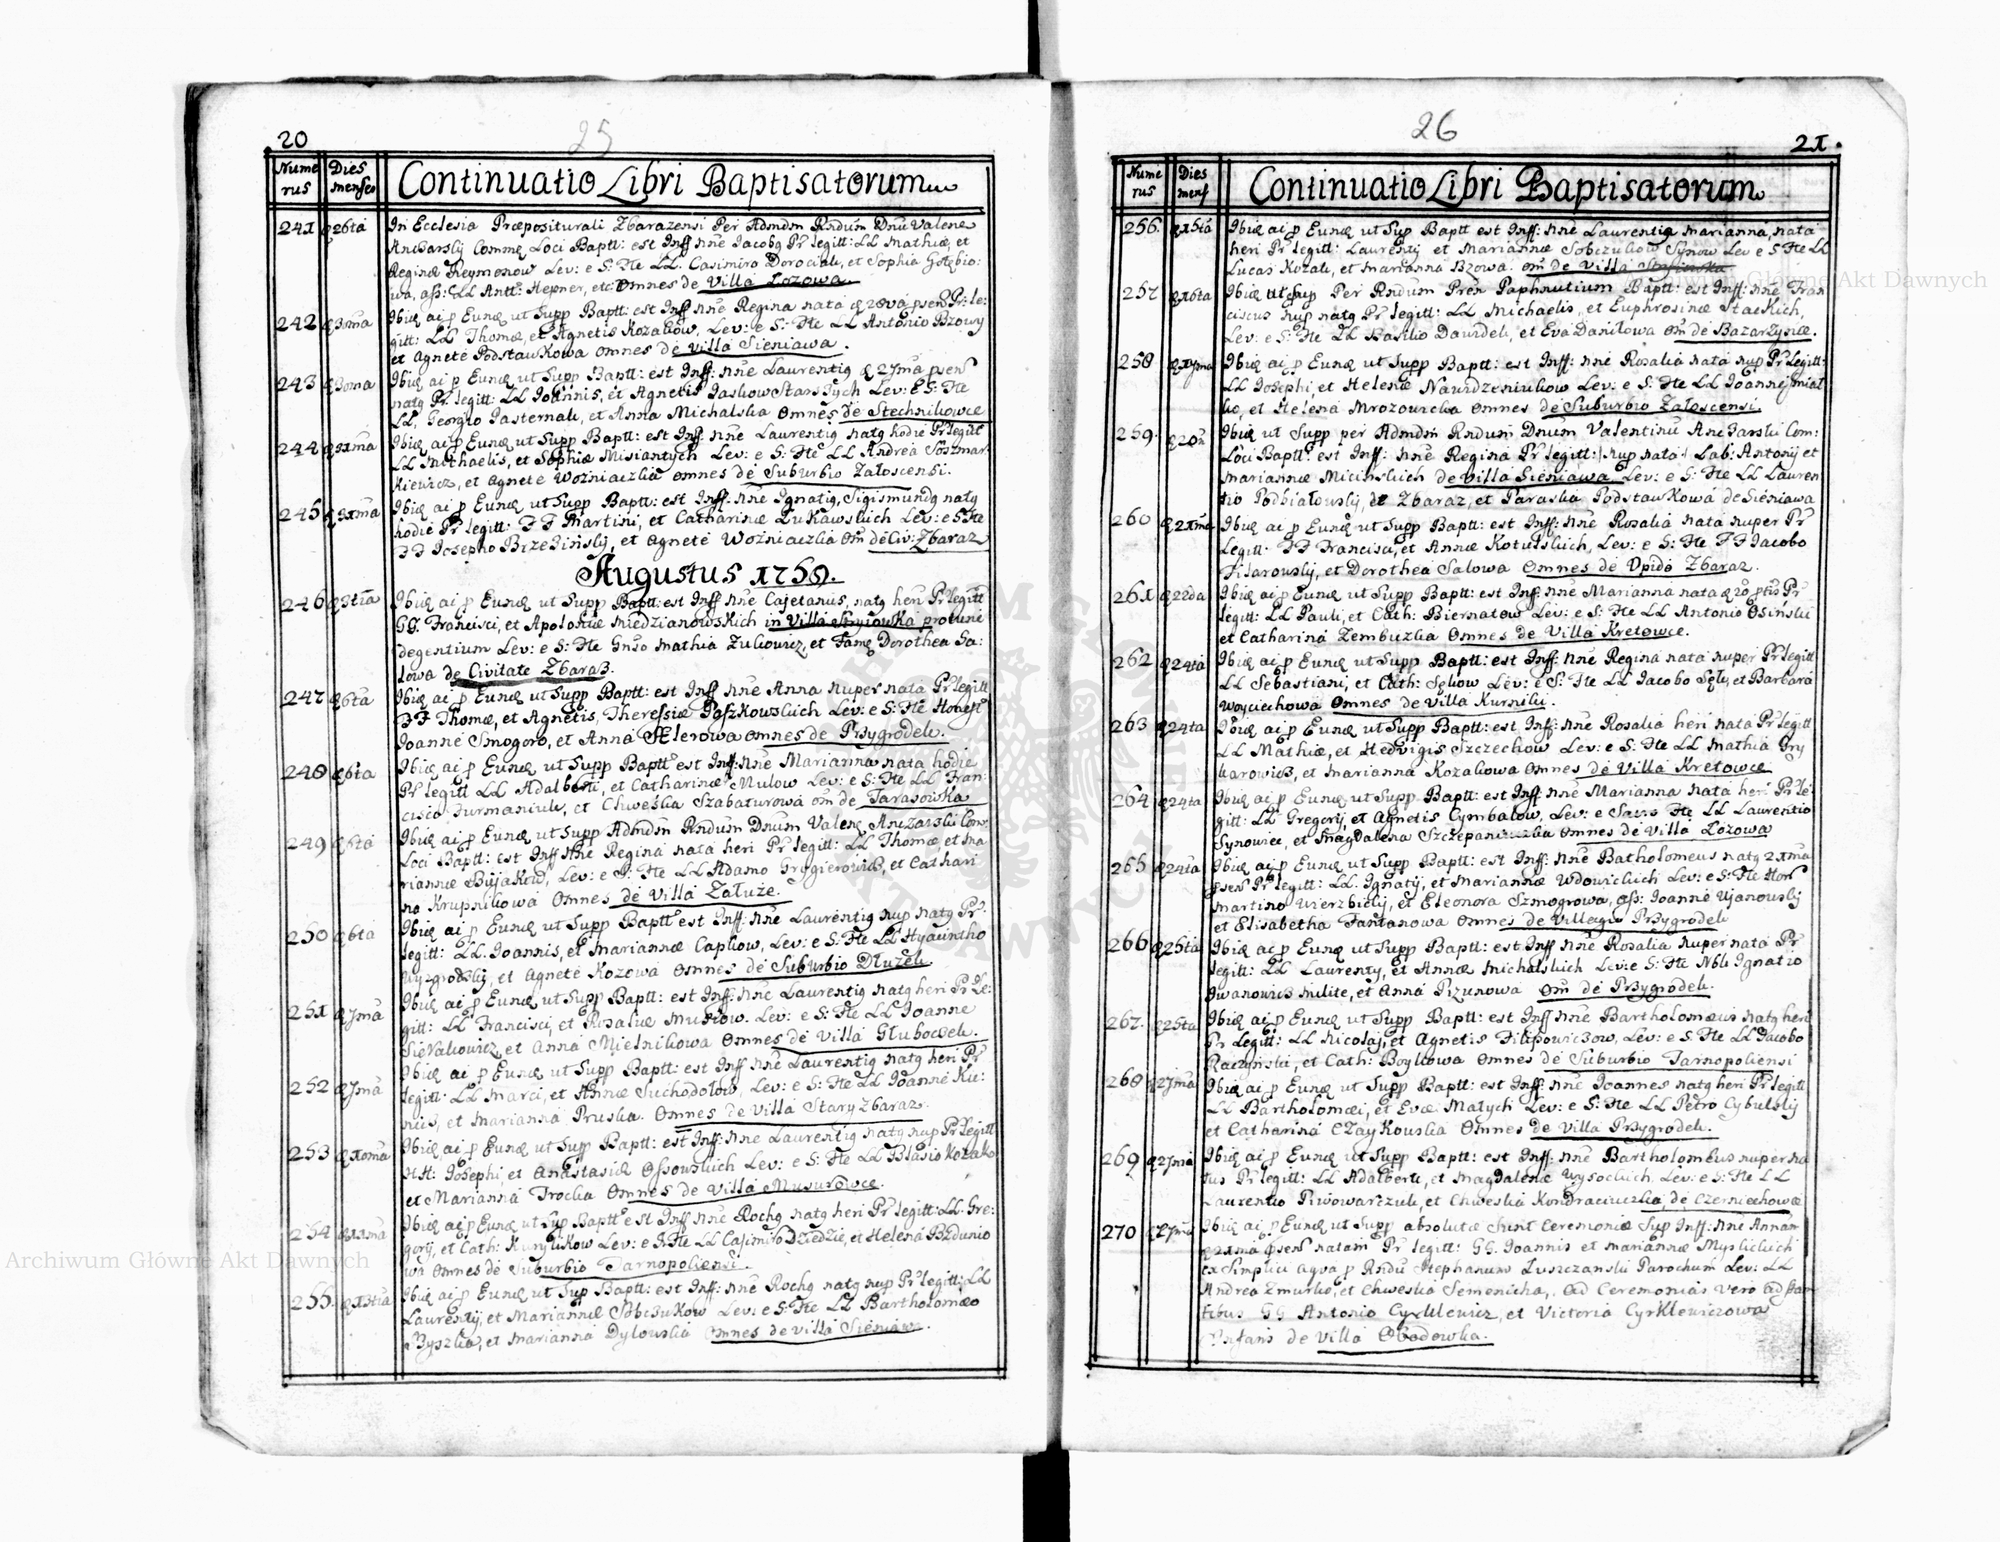 20
25
Nume
rus
Dies
menses
Continuatio Libri Baptisatorum
241 26ta In Ecclesia Præpositurali Zbarazensi Per Admdm Rndum Dnum
Loci Baptt: est Inff nne Jacobg Pr legitt: LL Mathiæ, et
Reginæ Reymonow Lev: e S: Fte LL. Casimiro et Sophia
wa, ass: LL Antt: Hepner, etc: Omnes de Villa Lozowa.
242 30ma Ibid ai p Eund ut Supp Baptt: est Inff nne Regina nata Pr: le:
gitt: LL Thomæ, et Agnetis Kozakow, Lev: e S: Fte LL Antonio Bzowy
et Agnete Podstawkowa Omnes de Villa Sieniawa.
243 30ma Ibid ai p Eund ut Supp Baptt: est Inff: nne Laurentig 27ma
natg Pr. legitt: LL Joannis, et Agnetis Lev: e S: Fte
LL, Georgio Pasternak, et Anna Michalska Omnes de Stechnikowce
244 31ma Ibid ai p Eund ut Supp Baptt: est Inff: nne Laurentig natg hodie Pr legitt
LL Michaelis, et Sophiæ Misiantych Lev: e S: Fte LL Andrea
kiewicz, et Agnete Wozniaczka omnes de Suburbio Zaloscensi.
245 31ma Ibid ai p Eund ut Supp Baptt: est Inff: nne Ignatig, Sigismundg natg
hodie Pr legitt: FF Martini, et Catharinæ Lukawskich Lev: e S: Fte
FF Josepho Brzezinskij, et Agnete Wozniaczka Om de Civ: Zbaraz
Augustus 1759.
246 3tia Ibid ai p Eund ut Supp Baptt: est Inff nne Cajetanus, natg heri Pr legitt
GG. Francisci, et Apoloniæ Miedzianowskich in Villa pro tunc
degentium Lev: e S: Fte Gnso Mathia Zulkowicz, et Fama Dorothea Sa:
lowa de Civitate Zbaraz.
247 6ta Ibid ai p Eund ut Supp Baptt: est Inff nne Anna nuper nata Pr legitt
FF Thomæ, et Agnetis, Theressiæ Paszkowskich Lev: e S: Fte Honest
Joanne Smogoro, et Anna Omnes de Przygrodek.
248 6ta Ibid ai p Eund ut Supp Baptt est Inff: nne Marianna nata hodie
Pr legitt LL Adalberti, et Catharinæ Mulow Lev: e S: Fte LL Fran:
cisco Furmaniuk, et Chweska Szabaturowa om de Tarasowka
249 6ta Ibid ai p Eund ut Supp Admdm Rndum Dnum
Loci Baptt: est Inff nne Regina nata heri Pr legitt: LL Thomæ, et Ma
riannæ Bujakow, Lev: e S: Fte LL Adamo et Cathari
na Krupnikowa Omnes de Villa Załuze.
250 6ta Ibid ai p Eund ut Supp Baptt est Inff: nne Laurentig nup natg Pr.
legitt: LL. Joannis, et Mariannæ Capkow, Lev: e S: Fte LL Hyacintho
et Agnete Kozowa Omnes de Suburbio Dłuzek.
251 7ma Ibid ai p Eund ut Supp Baptt: est Inff: nne Laurentig natg heri Pr Le:
gitt: LL Francisci, et Rosaliæ Lev: e S: Fte LL Joanne
et Anna Mielnikowa Omnes de Villa Głuboczek.
252 7ma Ibid ai p Eund ut Supp Baptt: est Inff nne Laurentig natg heri Pr
legitt: LL Marci, et Annæ Suchodolow, Lev: e S: Fte LL Joanne
et Marianna Pruska. Omnes de Villa Stary Zbaraz.
253 10ma Ibid ai p Eund ut Supp Baptt: est Inff: nne Laurentig natg nup Pr legitt
HH: Josephi, et Anastasiæ Ossowskich Lev: e S: Fte LL Blasio Kozak
et Marianna Trocka Omnes de Villa Musurowce.
254 11ma Ibid ai p Eund ut Sup Baptt est Inff nne Rochg natg heri Pr legitt: LL. Gre:
gorij, et Cath: Kurylikow Lev: e S: Fte LL Casimiro Dziedzic, et Helena
wa Omnes de Suburbio Tarnopoliensi.
255. 13tia Ibid ai p Eund ut Sup Baptt: est Inff: nne Rochg natg nup Pr legitt: LL
Laurentij, et Mariannæ Sobczukow Lev: e S: Fte LL Bartholomæo
et Marianna Dylowska Omnes de Villa Sieniawa.
26
21.
Nume
rus
Dies
mens
Continuatio Libri Baptisatorum
256. 15ta Ibid ai p Eund ut Sup Baptt est Inff: nne Laurentia Marianna, nata
heri Pr legitt: Laurentij et Mariannæ Sobczukow Synow Lev e S Fte LL
Lucas Kozak, et Marianna Bzowa. om de Villa
257 16ta Ibid ut Sup Per Rndum Pren Paphnutium Baptt: est Inff: nne Fran
ciscus nup natg Pr legitt: LL Michaelis, et Euphrosinæ Stackich,
Lev: e S: Fte LL Basilio Dawidek, et Eva Danilowa Om de Bazarzynce.
258 17ma Ibid ai p Eund ut Supp Baptt: est Inff: nne Rosalia nata nup Pr Legitt:
LL Josephi, et Helenæ Nawrdzeniukow Lev: e S: Fte LL Joanne
ko, et Helena Mrozowicka Omnes de Suburbio Załoscensi.
259. 20ma Ibid ut Supp per Admdm Rndum Dnum Valentinu Com:
Loci Baptt: est Inff: nne Regina Pr legitt: nup nata Lab: Antonij et
Mariannæ Micinskich de Villa Sieniawa Lev: e S: Fte LL Lauren
tio Podbialowskij de Zbaraz, et Paraska Podstawkowa de Sieniawa
260 21ma Ibid ai p Eund ut Supp Baptt: est Inff: nne Rosalia nata nuper Pr
Legitt. FF Francisci, et Annæ Kotulskich, Lev: e S: Fte FF Jacobo
Fidarowskij, et Dorothea Salowa Omnes de Opido Zbaraz.
261 22da Ibid ai p Eund ut Supp Baptt: est Inff: nne Marianna nata Pr
legitt: LL Pauli, et Cath: Biernatow Lev: e S: Fte LL Antonio Osinski
et Catharina Zembuzka Omnes de Villa Kretowce.
262 24ta Ibid ai p Eund ut Supp Baptt: est Inff: nne Regina nata nuper Pr legitt
LL Sebastiani, et Cath: Sękow Lev: e S: Fte LL Jacobo Sęk, et Barbara
Woyciechowa Omnes de Villa Kurniki.
263 24ta Ibid ai p Eund ut Supp Baptt: est Inff: nne Rosalia heri nata Pr legitt
LL Mathiæ, et Hedvigis Szczechow Lev: e S: Fte LL Mathia Gry
karowicz, et Marianna Kozakowa Omnes de Villa Kretowce
264 24ta Ibid ai p Eund ut Supp Baptt: est Inff: nne Marianna nata heri Pr Le
gitt: LL Gregorij et Agnetis Cymbalow, Lev: e Sacro Fte LL Laurentio
Synowiec, et Magdalena Szczepaniuczka Omnes de Villa Lozowa
265 24ta Ibid ai p Eund ut Supp Baptt: est Inff: nne Batholomeus natg 21ma
Pr legitt: LL. Ignatij, et Mariannæ Wdowickich Lev: e S: Fte Hon
Martino Wierzbickij, et Eleonora Szmogrowa, ass: Joanne Ujanowskij
et Elisabetha Fantanowa Omnes de Villagio Przygrodek
266 25ta Ibid ai p Eund ut Supp Baptt: est Inff nne Rosalia nuper nata Pr
legitt: LL Laurenty, et Annæ Michalskich Lev: e S: Fte Nbli Ignatio
Iwanowicz milite, et Anna Pizunowa Om de Przygrodek.
267. 25ta Ibid ai p Eund ut Supp Baptt: est Inff nne Bartholomæus natg heri
Pr legitt: LL Nicolaj, et Agnetis Filipowiczow, Lev: e S: Fte LL Jacobo
Raczynski, et Cath: Boykowa Omnes de Suburbio Tarnopoliensi
268 27ma Ibid ai p Eund ut Supp Baptt: est Inff: nne Joannes natg heri Pr legitt
LL Bartholomæi, et Evæ Małych Lev: e S: Fte LL Petro Cybulskij
et Catharina Czaykowska Omnes de Villa Przygrodek.
269 27ma Ibid ai p Eund ut Supp Baptt: est Inff: nne Bartholomeus nuper na
tus Pr legitt: LL Adalberti, et Magdalenæ Wysockich Lev: e S: Fte LL
Laurentio Piwowarczuk, et Chweska Kondraciuczka, de Czerniechowce
270 27ma Ibid ai p Eund ut Supp absolutæ Sunt Ceremoniæ Sup Inff: nne Annam
21ma natam Pr legitt: GG. Joannis et Mariannæ Myslickich
ex Simplici aqva p Rndu Stephanum Luszczanski Parochum Lev: LL
Andrea Zmurko, et Chweska Semenicha, ad Ceremonias vero ad stan
tibus GG Antonio Cyrklewicz, et Victoria Cyrklewiczowa
Infans de Villa Obodowka.
Archiwum Główne Akt Dawnych
Archiwum Główne Akt Dawnych
ARCHIWUM GŁÓWNE AKT DAWNYCH